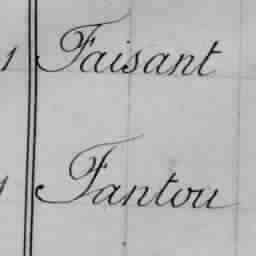 1 Faisant
1 Fantou